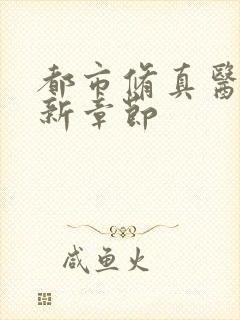 都市脩真醫
新章節
咸鱼火